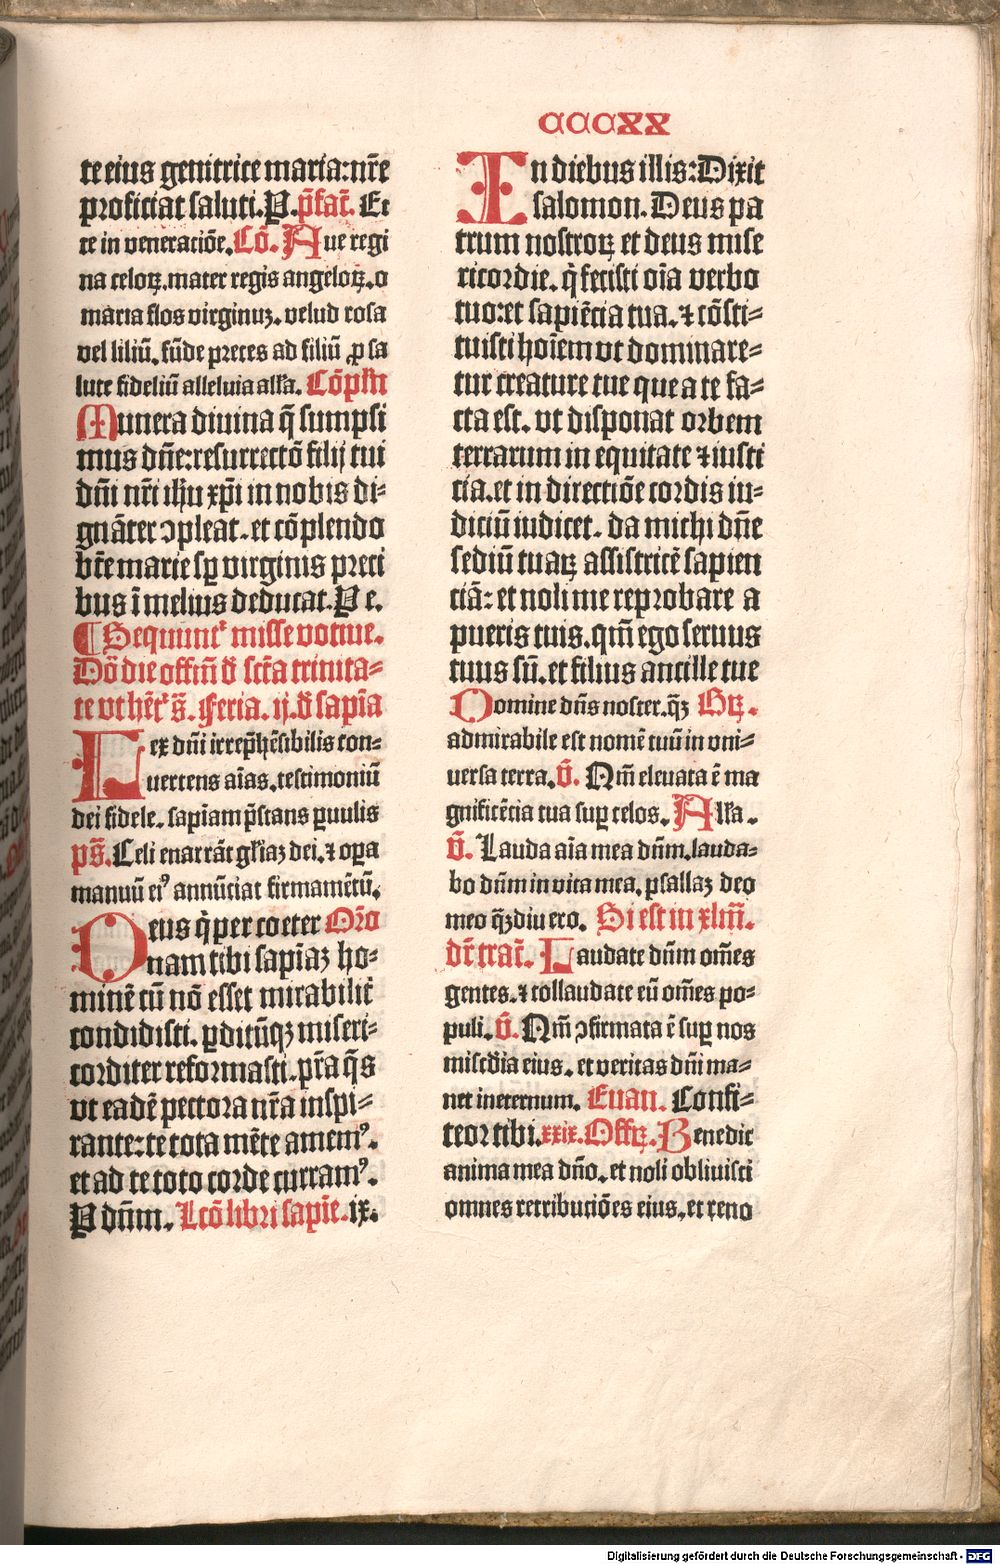 CCCXX
te eius genitrice maria: nr̃e
proficiat saluti. P. p̃fac̃. Et
te in veneratiõe. Cõ. Aue regi
na celoꝝ. mater regis angeloꝝ. o
maria flos virginuꝫ. velud rosa
vel liliũ. fũde preces ad filiũ ꝓ sa
lute fideliũ alleluia alľa. Cõpľn
Munera diuina q̃ sumpsi
mus dñe: resurrectõ filij tui
dñi nr̃i ihũ xp̃i in nobis di⸗
gnãter ↄpleat. et cõplendo
bt̃e marie sꝑ virginis preci
bus ĩ melius deducat. P e.
¶ Sequunt᷑ misse votiue.
Dõ die offiñ ð sct̃a trinita⸗
te vt hẽt᷑ s̃. Feria. ij. ð sapĩa
Lex dñi irrep̃hẽsibilis con⸗
uertens aĩas. testimoniũ
dei fidele. sapĩam p̃stans ꝑuulis
ps̃. Celi enarrãt gľiaꝫ dei. ⁊ oꝑa
manuũ eiꝰ annũciat firmamẽtũ.
Deus q̃ per coeter Or̃o
nam tibi sapĩaꝫ ho⸗
minẽ cũ nõ esset mirabilit̃
condidisti. ꝑditũqꝫ miseri⸗
corditer reformasti. pr̃a q̃s
vt eadẽ pectora nr̃a inspi⸗
rante: te tota mẽte amemꝰ.
et ad te toto corde curramꝰ.
P dñm. Lcõ libri sapiẽ. ix.
In diebus illis: Dixit
salomon. Deus pa
trum nostroꝝ et deus mise
ricordie. q̃ fecisti oĩa verbo
tuo: et sapiẽcia tua. ⁊ cõsti⸗
tuisti hoĩem vt dominare⸗
tur creature tue que a te fa⸗
cta est. vt disponat orbem
terrarum in equitate ⁊ iusti
cia. et in directiõe cordis iu⸗
diciũ iudicet. da michi dñe
sediũ tuaꝝ assistricẽ sapien
ciã: et noli me reprobare a
pueris tuis. qm̃ ego seruus
tuus sũ. et filius ancille tue
Domine dñs noster. q̃ꝫ Gꝝ.
admirabile est nomẽ tuũ in vni⸗
versa terra. v̄. Qm̃ eleuata ẽ ma
gnificẽcia tua suꝑ celos. Alľa.
v̄. Lauda aĩa mea dñm. lauda⸗
bo dñm in vita mea. psallaꝫ deo
meo q̃ꝫdiu ero. Si est in xlm̃.
dr̃ trac̃. Laudate dñm om̃es
gentes. ⁊ collaudate eũ om̃es po⸗
puli. v̄. Qm̃ ↄfirmata ẽ suꝑ nos
miscðia eius. et veritas dñi ma⸗
net ineternum. Euan. Confi⸗
teor tibi. xxix. Offꝝ. Benedic
anima mea dño. et noli obliuisci
omnes retribuciões eius. et reno
Digitalisierung gefördert durch die Deutsche Forschungsgemeinschaft - DFG